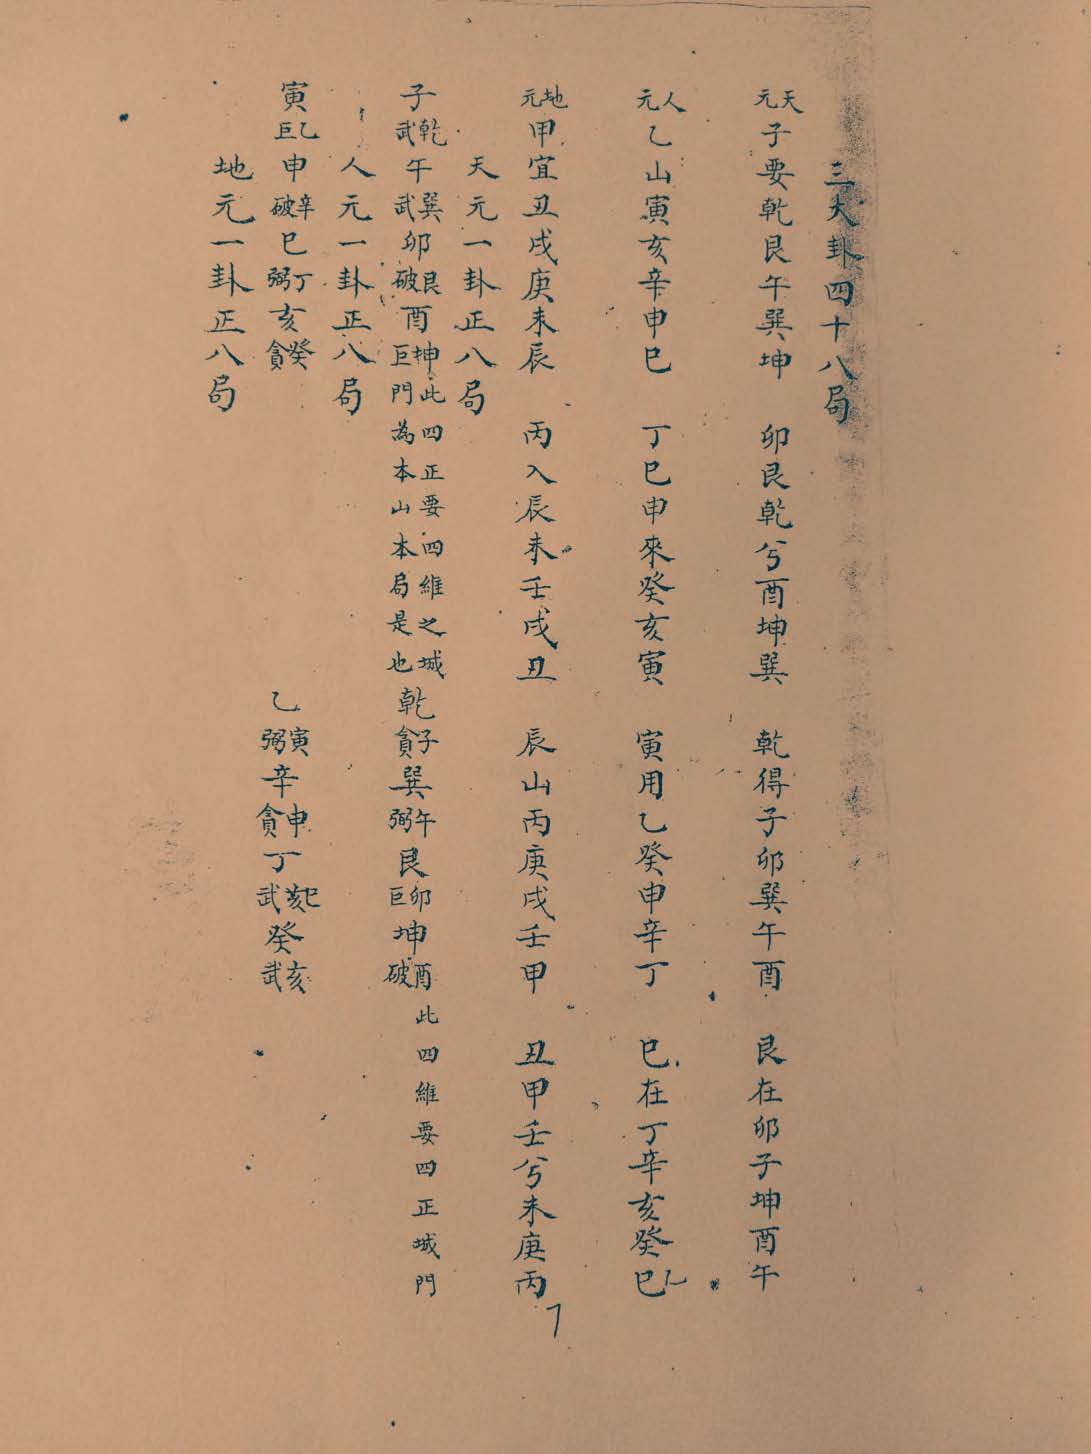 三大卦四十八局
天元 子要乾艮午巽坤 卯艮乾兮酉坤巽 乾得子卯巽午酉 艮在卯子坤酉午
人元 乙山寅亥辛申巳 丁巳申來癸亥寅 寅用乙癸申辛丁 巳在丁辛亥癸巳乙
地元 甲宜丑戌庚未辰 丙入辰未壬戌丑 辰山丙庚戌壬甲 丑甲壬兮未庚丙
天元一卦正八局
子乾武午巽武卯艮破酉坤巨此四正要四維之城門為本山本局是也乾子貪巽午弼艮卯巨坤酉破此四維要四正城門
人元一卦正八局
寅乙巨申辛破巳丁弼亥癸貪 乙寅弼辛申貪丁巳武癸亥武
地元一卦正八局